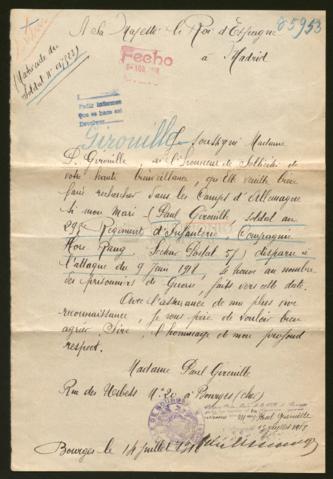 85953
A Sa Majesté le Roi d'Espagne
à Madrid
(Matricule du
Soldat N°
Fecho
Pedir informes
Devolver
Girouille
Je soussigné Madame
P. Girouille, ai l'honneur de solliciter de
votre haute bienveillance, qu'Elle veuille bien
faire rechercher dans les Camps d'Allemagne
si mon Mari (Paul Girouille, soldat au
29e Régiment d'Infanterie, Compagnie
Hors Rang Secteur Postal 57) disparu à
l'attaque du 9 Juin 1918, se trouve au nombre
des prisonniers de Guerre, faits vers cette date.
Avec l'assurance de ma plus vive
reconnaissance, je vous prie de vouloir bien
agréer Sire, l'hommage de mon profond
respect.
Madame Paul Girouille
Rue des N° 20 à Bourges (Cher)
Bourges le 14 Juillet 1918